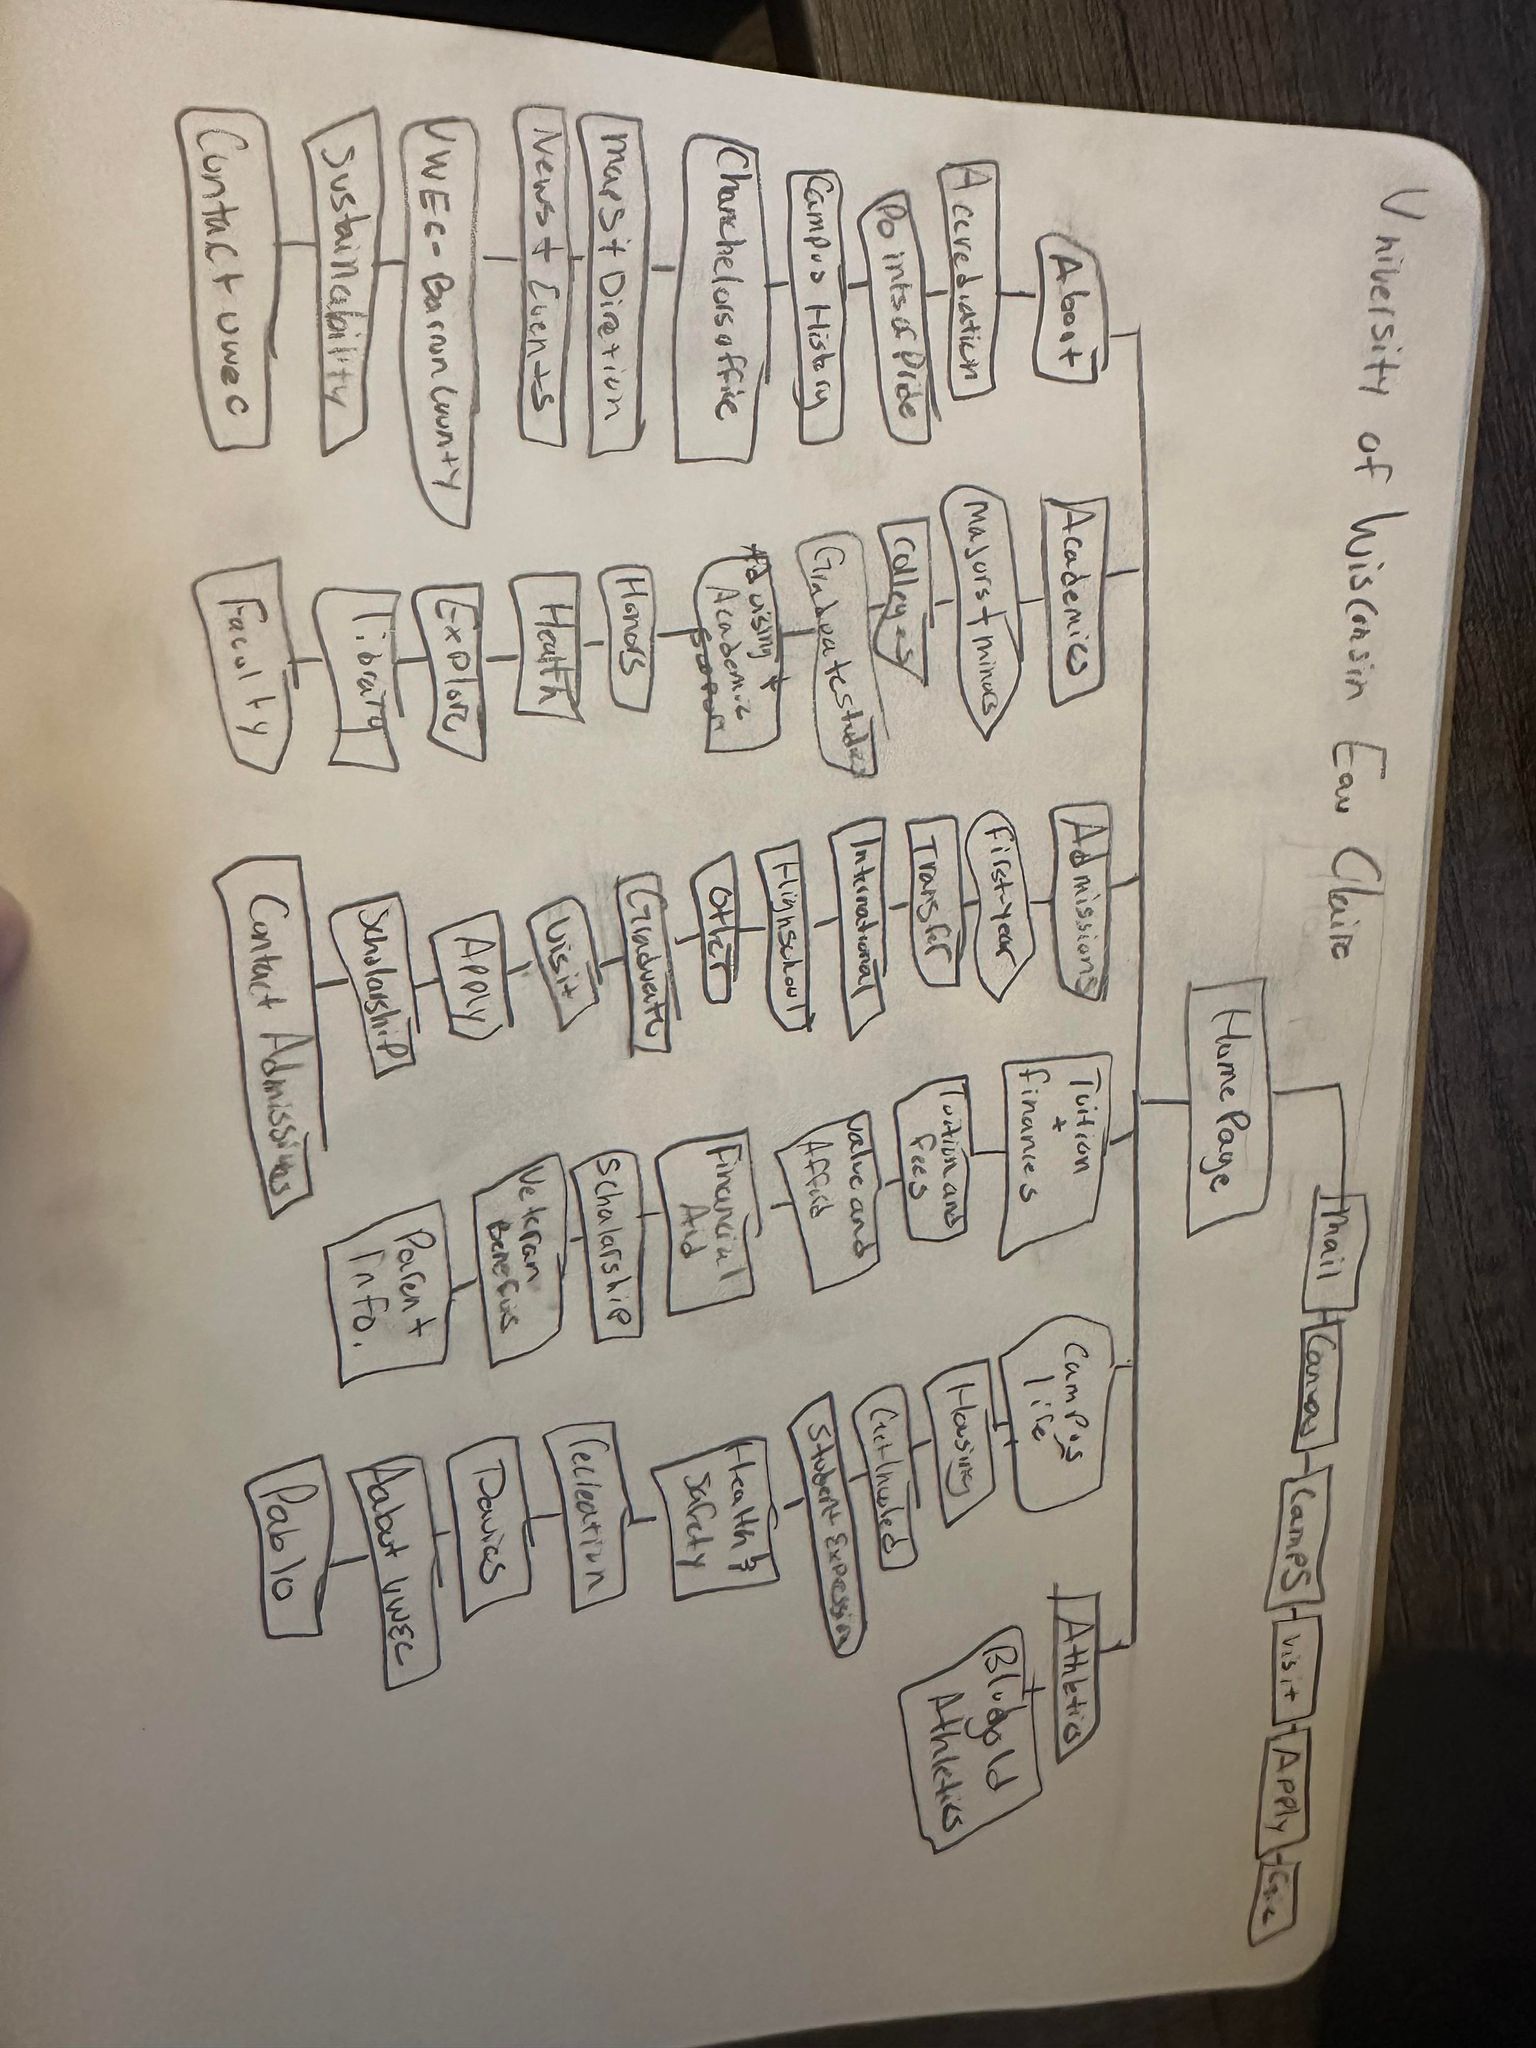 University of Wisconsin Eau Claire
Mail
Canvas
CampS
Visit
Apply
Give
HomePage
About
Accrediation
Points of Pride
Campus History
Chanchelors office
Maps + Diretion
News + Events
UWEC-Barron County
Sustainability
Contact uwec
Academics
Majors + minors
Colleges
Graduate studies
Advising +
Academic
Honors
Health
Explore
Library
Faculty
Admissions
First-year
Transfer
International
Highschool
Other
Graduate
Visit
Apply
Scholarship
Contact Admissions
Tuition
+
finances
Tuition and
Fees
Value and
Afford
Financial
Aid
Scholarship
Veteran
Benefits
Parent
Info.
Campus
life
Housing
Get Involved
Student Expression
Health &
Safety
recreation
Davies
Aabout UWEC
Pablo
Athletics
Blugold
Athletics